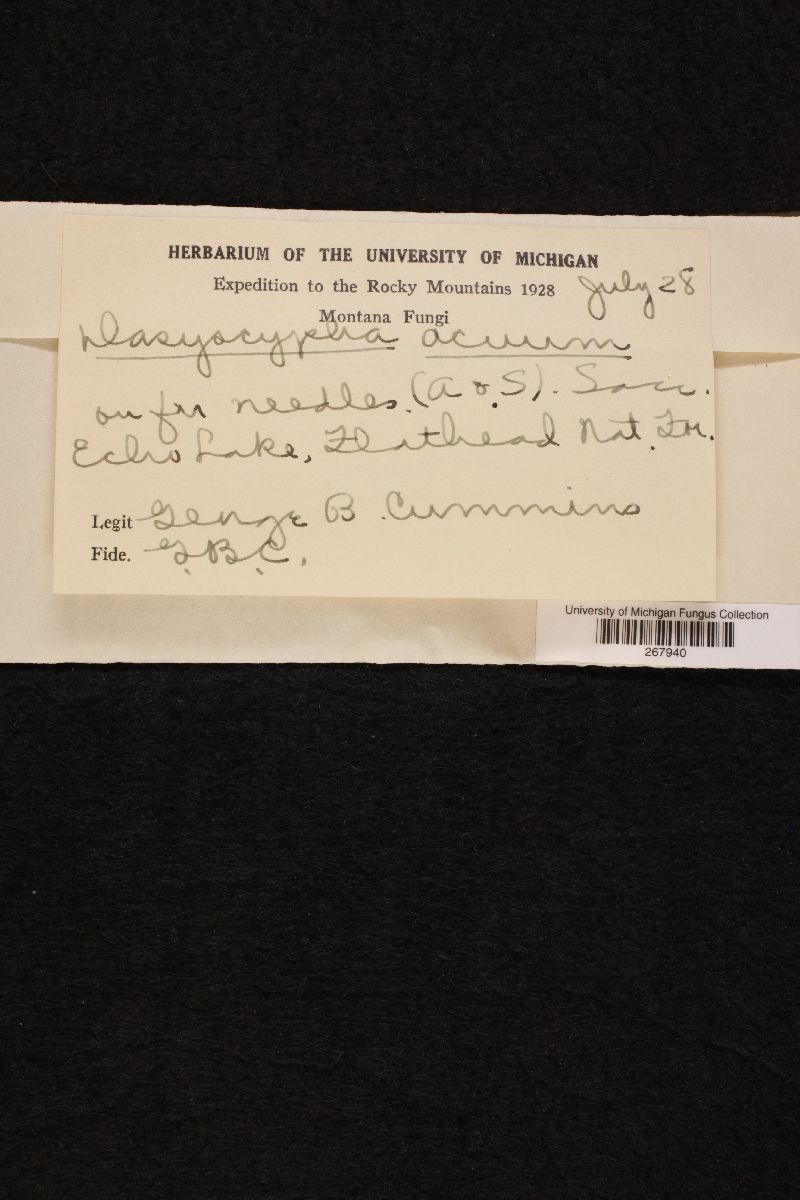 HERBARIUM OF THE UNIVERSITY OF MICHIGAN
Expedition to the Rocky Mountains 1928 July 28
Montana Fungi
Dasyscypha acuum
on fir needles. (A & S). Sacc.
Echo Lake, Flathead Nat. For.
Legit George B. Cummins
Fide. G.B.C.
University of Michigan Fungus Collection
267940